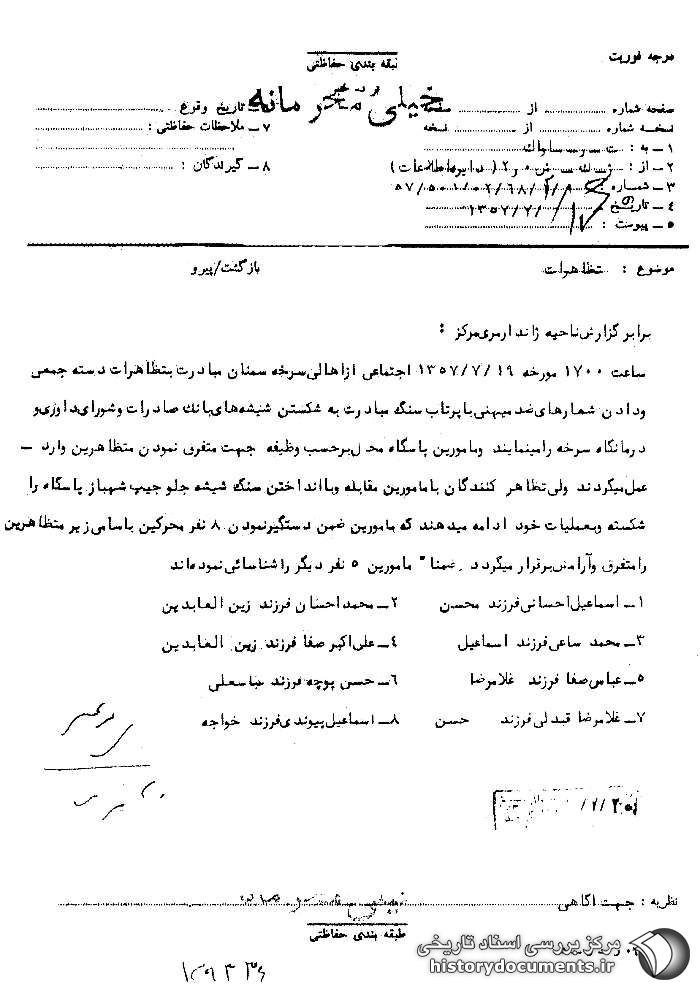 درجه فوریت
طبقه بندی حفاظتی
خیلی محرمانه
صفحه شماره از صفحه
نسخه شماره از نسخه
۱ـ به :
۲ـ از : (دایره اطلاعات)
۳ـ شماره
۴ـ تاریخ ۱۳۵۷/۷/
۵ـ پیوست :
تاریخ وقوع
۷ـ ملاحظات حفاظتی :
۸ـ گیرندگان :
موضوع : تظاهرات
بازگشت/پیرو
برابر گزارش ناحیه ژاندارمری مرکز :
ساعت ۱۷۰۰ مورخه ۱۳۵۷/۷/۱۹ اجتماعی از اهالی سرخه سمنان مبادرت بتظاهرات دسته جمعی
ودادن شعارهای ضد میهنی با پرتاب سنگ مبادرت به شکستن شیشه های بانک صادرات وشورای داوری و
درمانگاه سرخه را مینمایند ومامورین پاسگاه محل برحسب وظیفه جهت متفرق نمودن متظاهرین وارد ـ
عمل میگردند ولی تظاهر کنندگان با مامورین مقابله وبا انداختن سنگ شیشه جلو جیپ شهباز پاسگاه را
شکسته وبعملیات خود ادامه میدهند که مامورین ضمن دستگیر نمودن ۸ نفر محرکین باسامی زیر متظاهرین
را متفرق وآرامش برقرار میگردد . ضمنا" مامورین ۵ نفر دیگر را شناسائی نموده اند
۱ـ اسماعیل احسانی فرزند محسن ۲ـ محمد احسان فرزند زین العابدین
۳ـ محمد ساعی فرزند اسماعیل ۴ـ علی اکبر صفا فرزند زین العابدین
۵ـ عباس صفا فرزند غلامرضا ۶ـ حسن پوچه فرزند عباسعلی
۷ـ غلامرضا قبدلی فرزند حسن ۸ـ اسماعیل پیوندی فرزند خواجه
نظریه : جهت آگاهی
طبقه بندی حفاظتی
مرکز بررسی اسناد تاریخی
historydocuments.ir